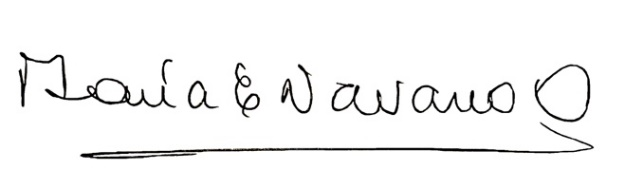 María E Navarro O